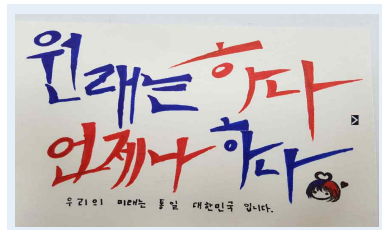 원래는 하나
언제나 하나
우리의 미래는 통일 대한민국 입니다.